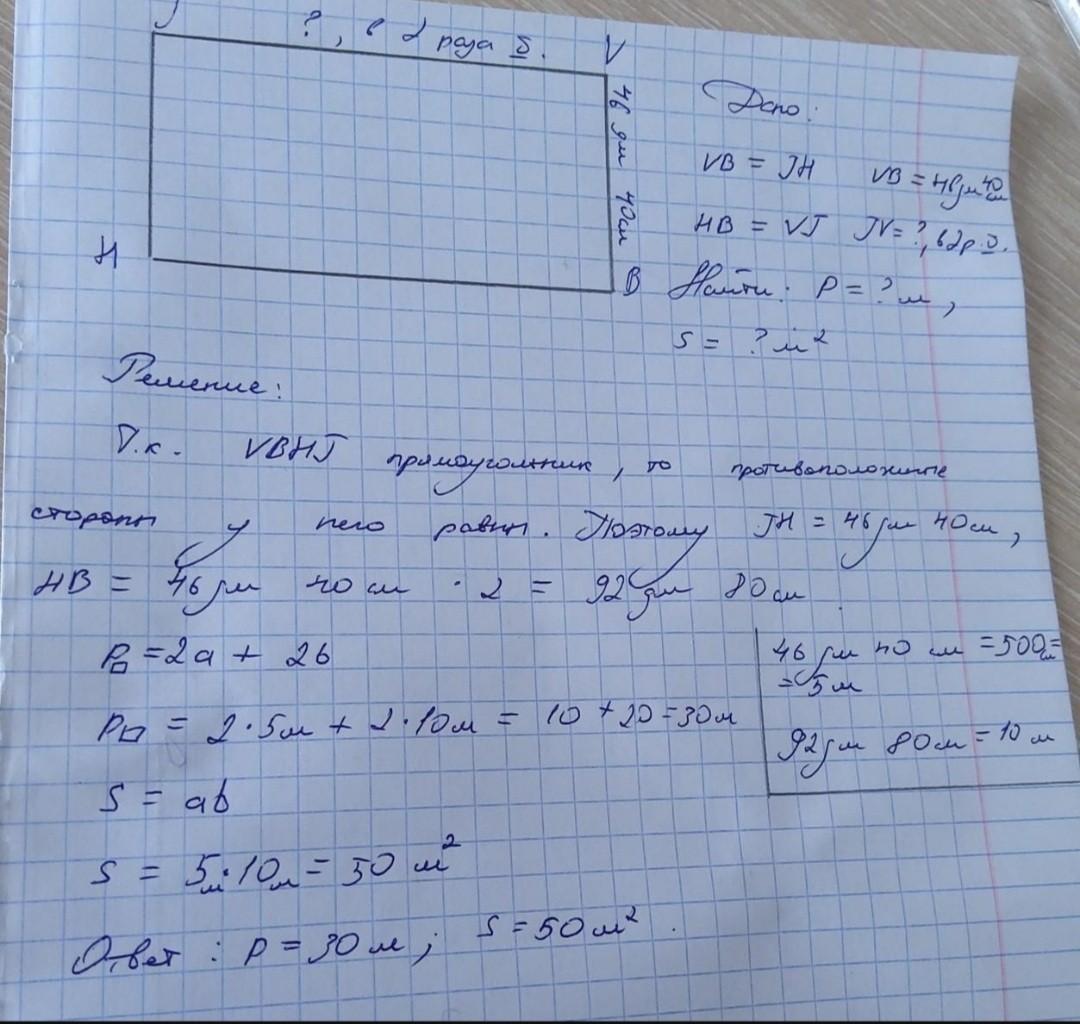 J ?, в 2 раза Б. V
46 дм 40 см
H
B
Дано:
VB = JH VB = 46 дм 40 см
HB = VJ JV = ?, в 2 р. Б.
Найти: P = ? м,
S = ? м²
Решение:
Т.к. VBHJ прямоугольник, то противоположные
стороны у него равны. Поэтому JH = 46 дм 40 см,
HB = 46 дм 40 см · 2 = 92 дм 80 см.
P▭ = 2a + 2b
P▭ = 2·5м + 2·10м = 10 + 20 = 30м
46 дм 40 см = 500 см =
= 5 м
92 дм 80 см = 10 м
S = ab
S = 5м·10м = 50 м²
Ответ: P = 30 м; S = 50 м².